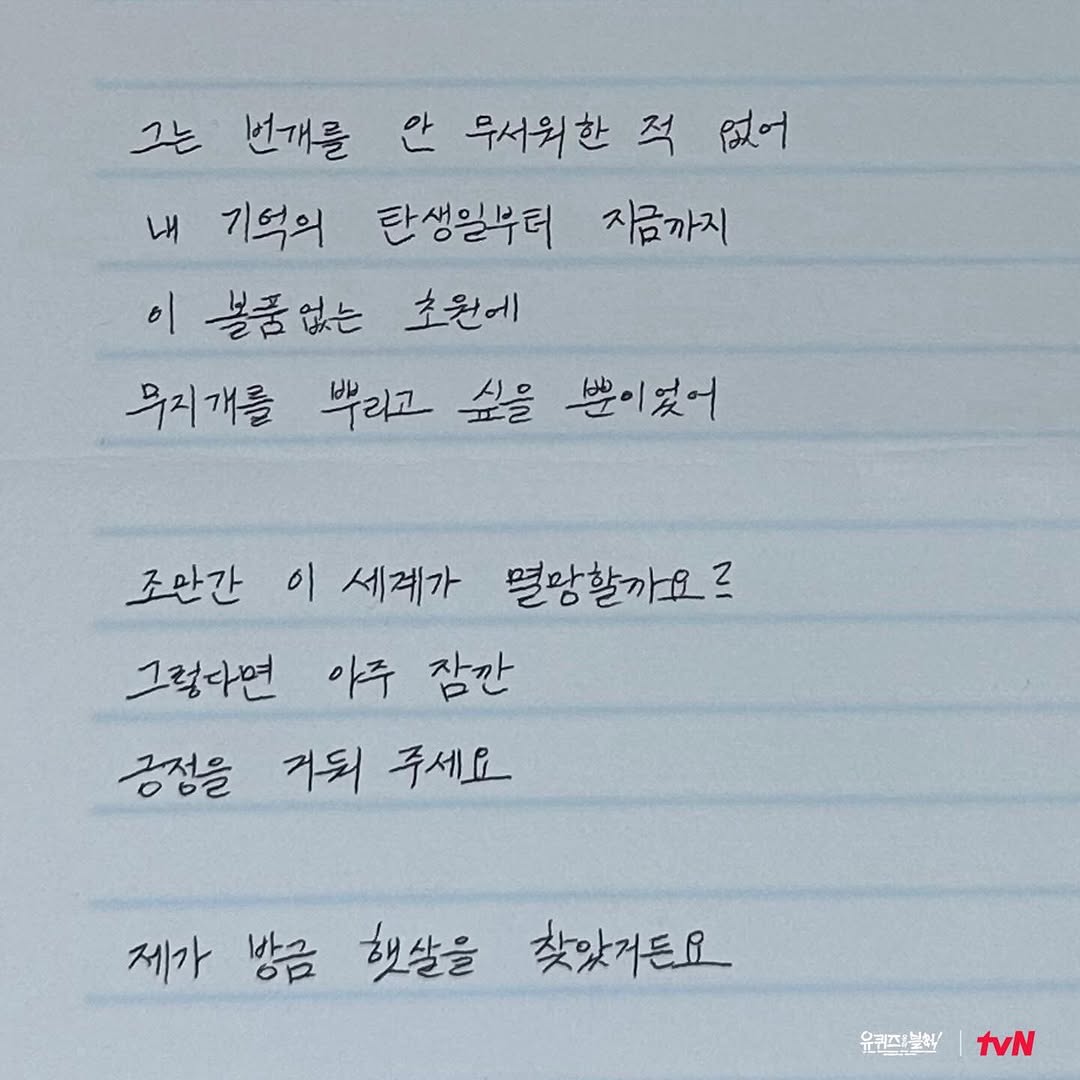 그는 번개를 안 무서워한 적 없어
내 기억의 탄생일부터 지금까지
이 볼품없는 초원에
무지개를 뿌리고 싶을 뿐이었어
조만간 이 세계가 멸망할까요?
그렇다면 아주 잠깐
긍정을 거둬 주세요
제가 방금 햇살을 찾았거든요
유퀴즈 온 더 블럭!
tvN